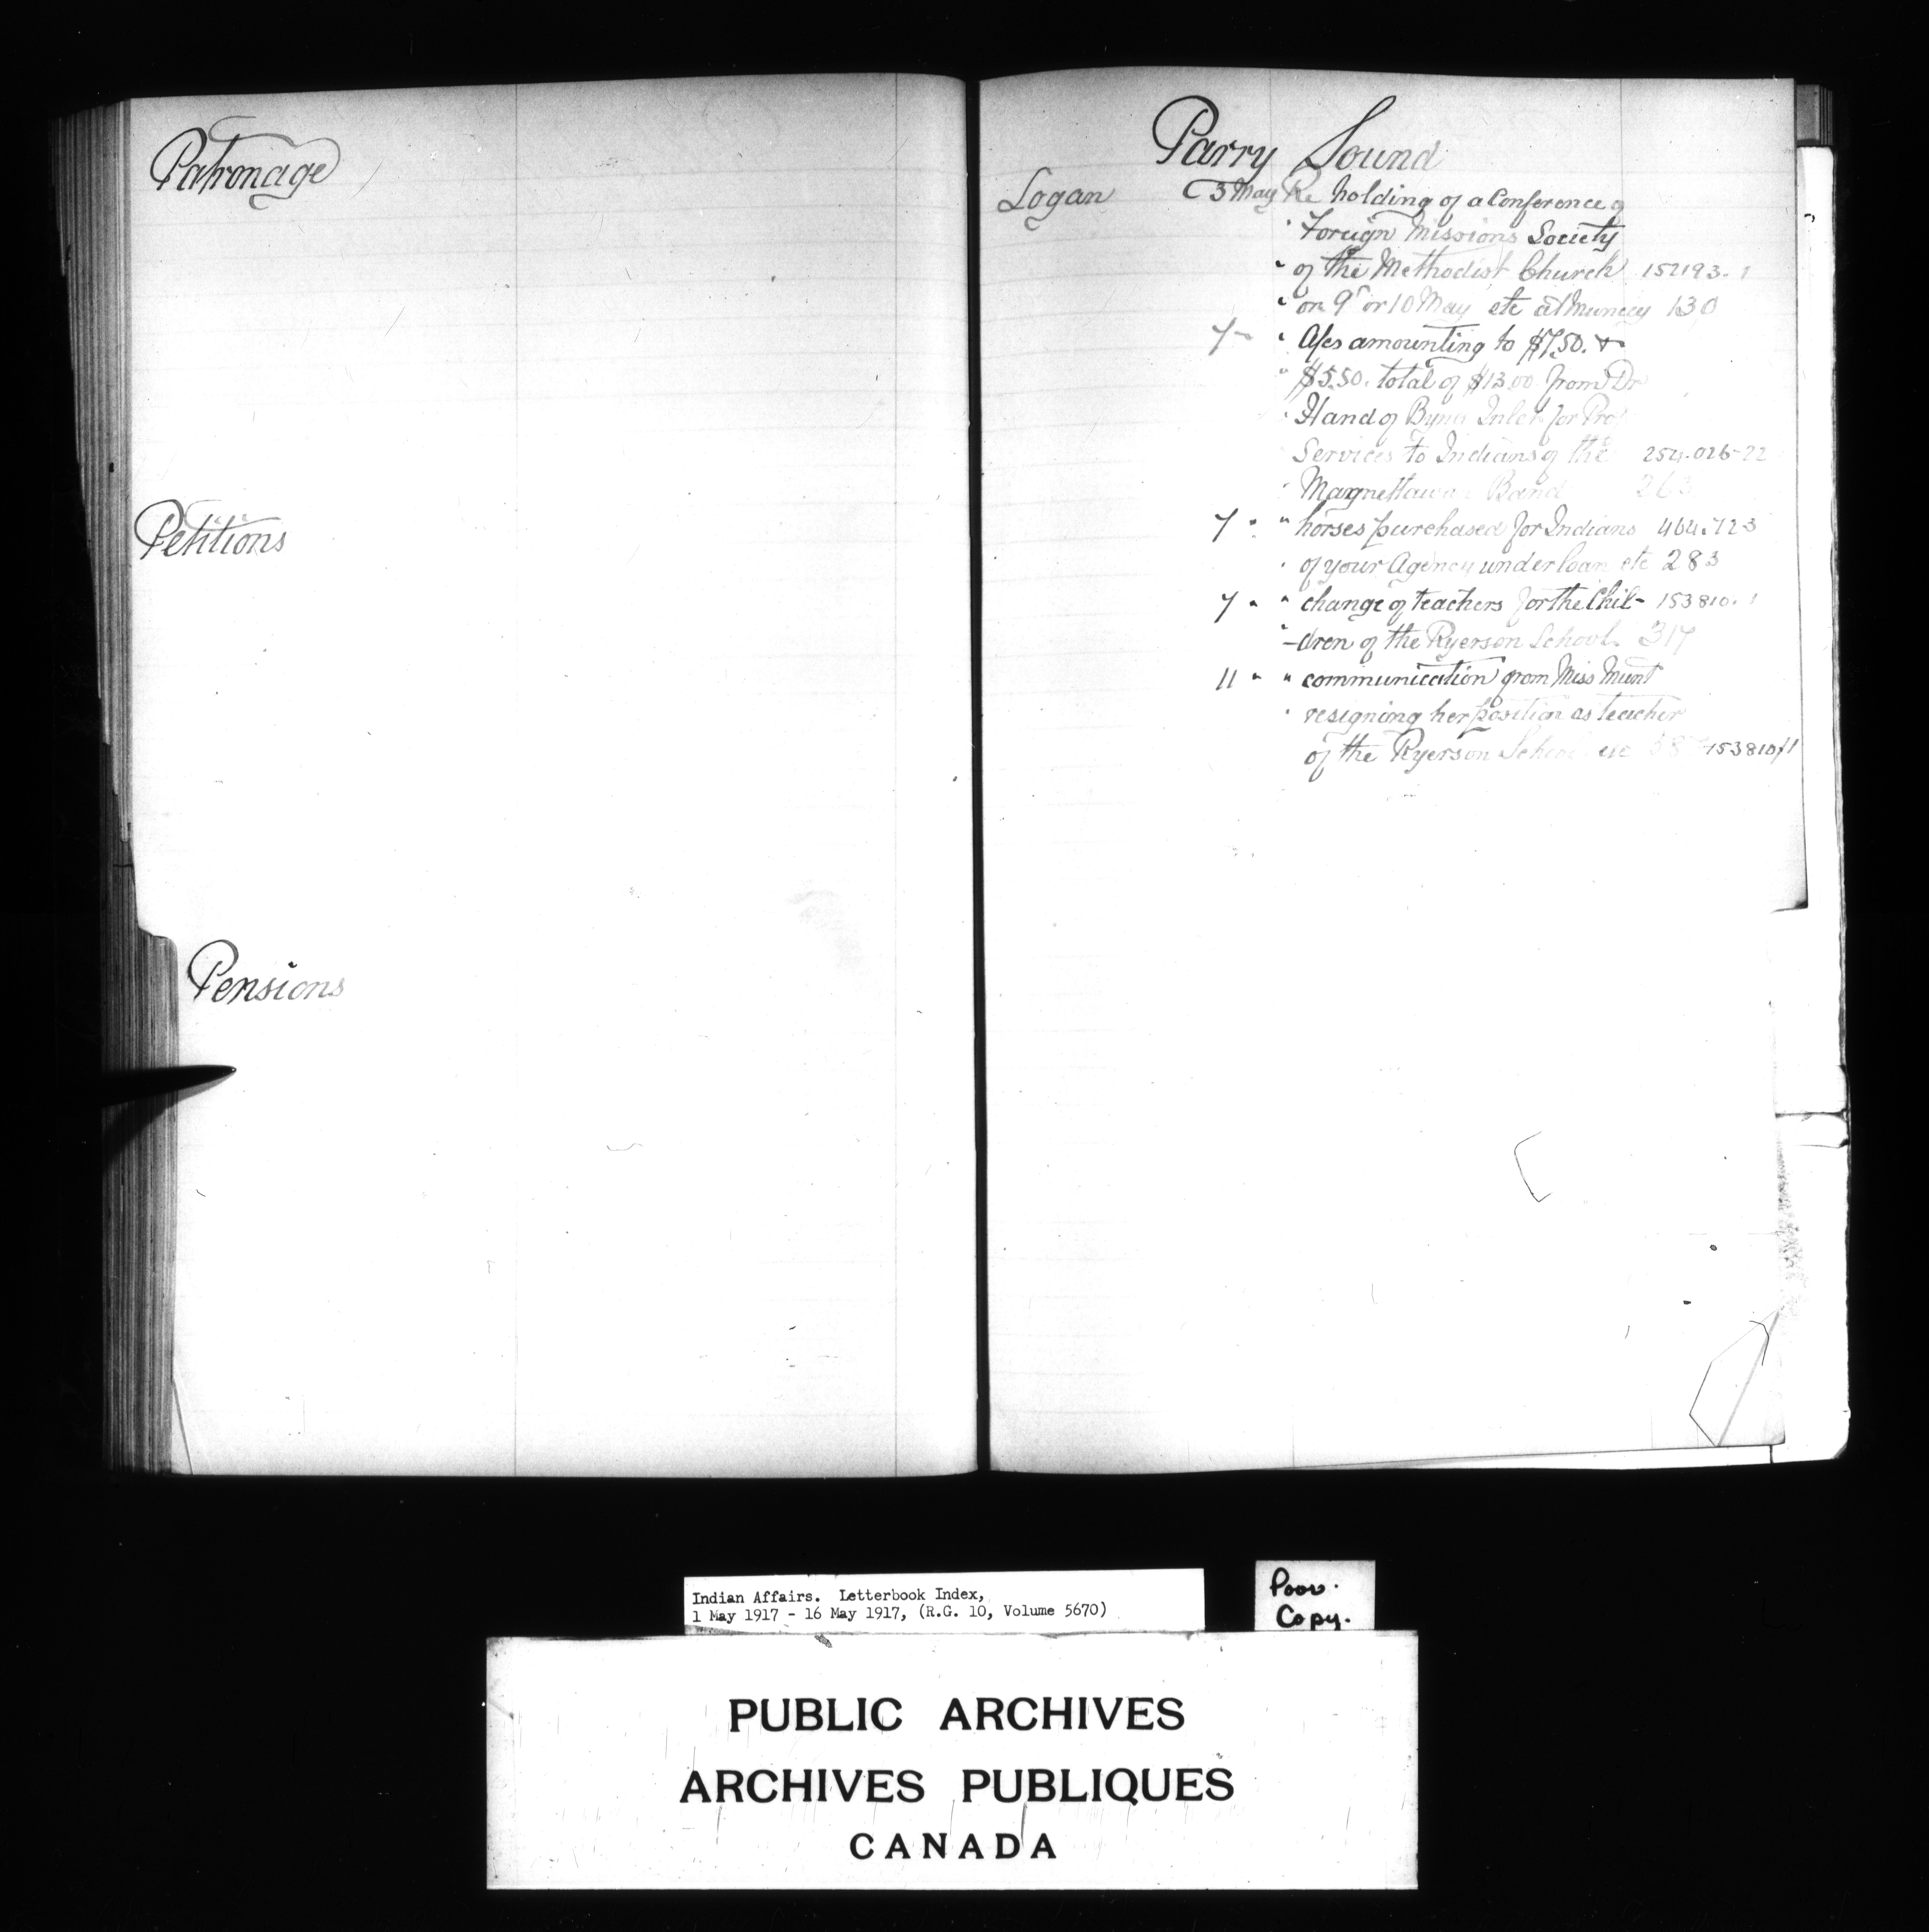 Patronage
Petitions
Pensions
Parry Sound
Logan 3 May Re holding of a Conference of
" Foreign Missions Society
" of the Methodist Church 152193-1
" on 9 or 10 May etc at Muncey 130
7 " " A/cs amounting to $7.50. &
" $5.50. total of $13.00 from Dr
" Hand of Byng Inlet for Prof
Services to Indians of the 254.026-22
" Magnettawan Band 263
7 " " horses purchased for Indians 464.723
" of your Agency under loan etc 283
7 " " change of teachers for the Chil- 153810-1
" -dren of the Ryerson School. 317
11 " " communication from Miss Munt
" resigning her position as teacher
of the Ryerson School etc 153810/1
Indian Affairs. Letterbook Index,
1 May 1917 - 16 May 1917, (R.G. 10, Volume 5670)
Poor.
Copy.
PUBLIC ARCHIVES
ARCHIVES PUBLIQUES
CANADA